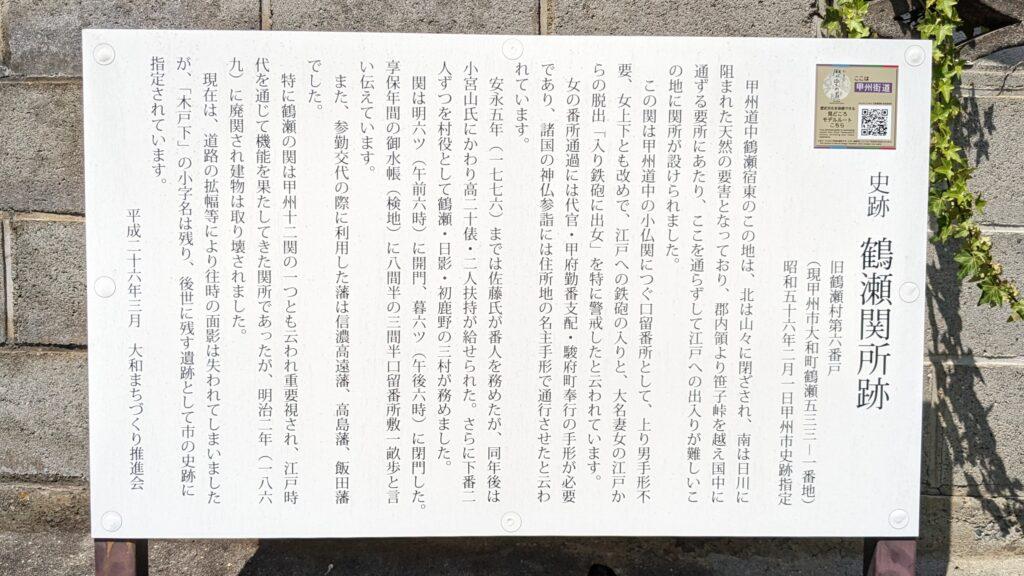 史跡 鶴瀬関所跡
旧鶴瀬村第六番戸
（現甲州市大和町鶴瀬五三三―一番地）
昭和五十六年二月一日甲州市史跡指定
甲州道中鶴瀬宿東のこの地は、北は山々に閉ざされ、南は日川に
阻まれた天然の要害となっており、郡内領より笹子峠を越え国中に
通ずる要所にあたり、ここを通らずして江戸への出入りが難しいこ
の地に関所が設けられました。
この関は甲州道中の小仏関につぐ口留番所として、上り男手形不
要、女上下とも改めで、江戸への鉄砲の入りと、大名妻女の江戸か
らの脱出「入り鉄砲に出女」を特に警戒したと云われています。
女の番所通過には代官・甲府勤番支配・駿府町奉行の手形が必要
であり、諸国の神仏参詣には住所地の名主手形で通行させたと云わ
れています。
安永五年（一七七六）までは佐藤氏が番人を務めたが、同年後は
小宮山氏にかわり高二十俵・二人扶持が給せられた。さらに下番二
人ずつを村役として鶴瀬・日影・初鹿野の三村が務めました。
関は明六ツ（午前六時）に開門、暮六ツ（午後六時）に閉門した。
享保年間の御水帳（検地）に八間半の三間半口留番所敷一畝歩と言
い伝えています。
また、参勤交代の際に利用した藩は信濃高遠藩、高島藩、飯田藩
でした。
特に鶴瀬の関は甲州十二関の一つとも云われ重要視され、江戸時
代を通じて機能を果たしてきた関所であったが、明治二年（一八六
九）に廃関され建物は取り壊されました。
現在は、道路の拡幅等により往時の面影は失われてしまいました
が、「木戸下」の小字名は残り、後世に残す遺跡として市の史跡に
指定されています。
平成二十六年三月 大和まちづくり推進会
ここは
甲州街道
見どころ
モデルルート
こちら